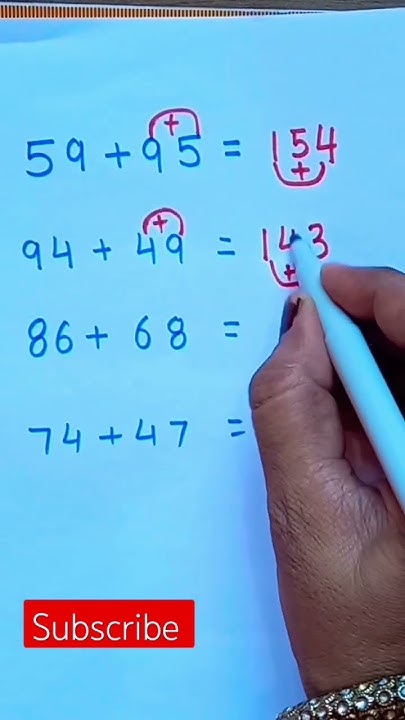 59 + 95 = 154
94 + 49 = 143
86 + 68 =
74 + 47 =
Subscribe